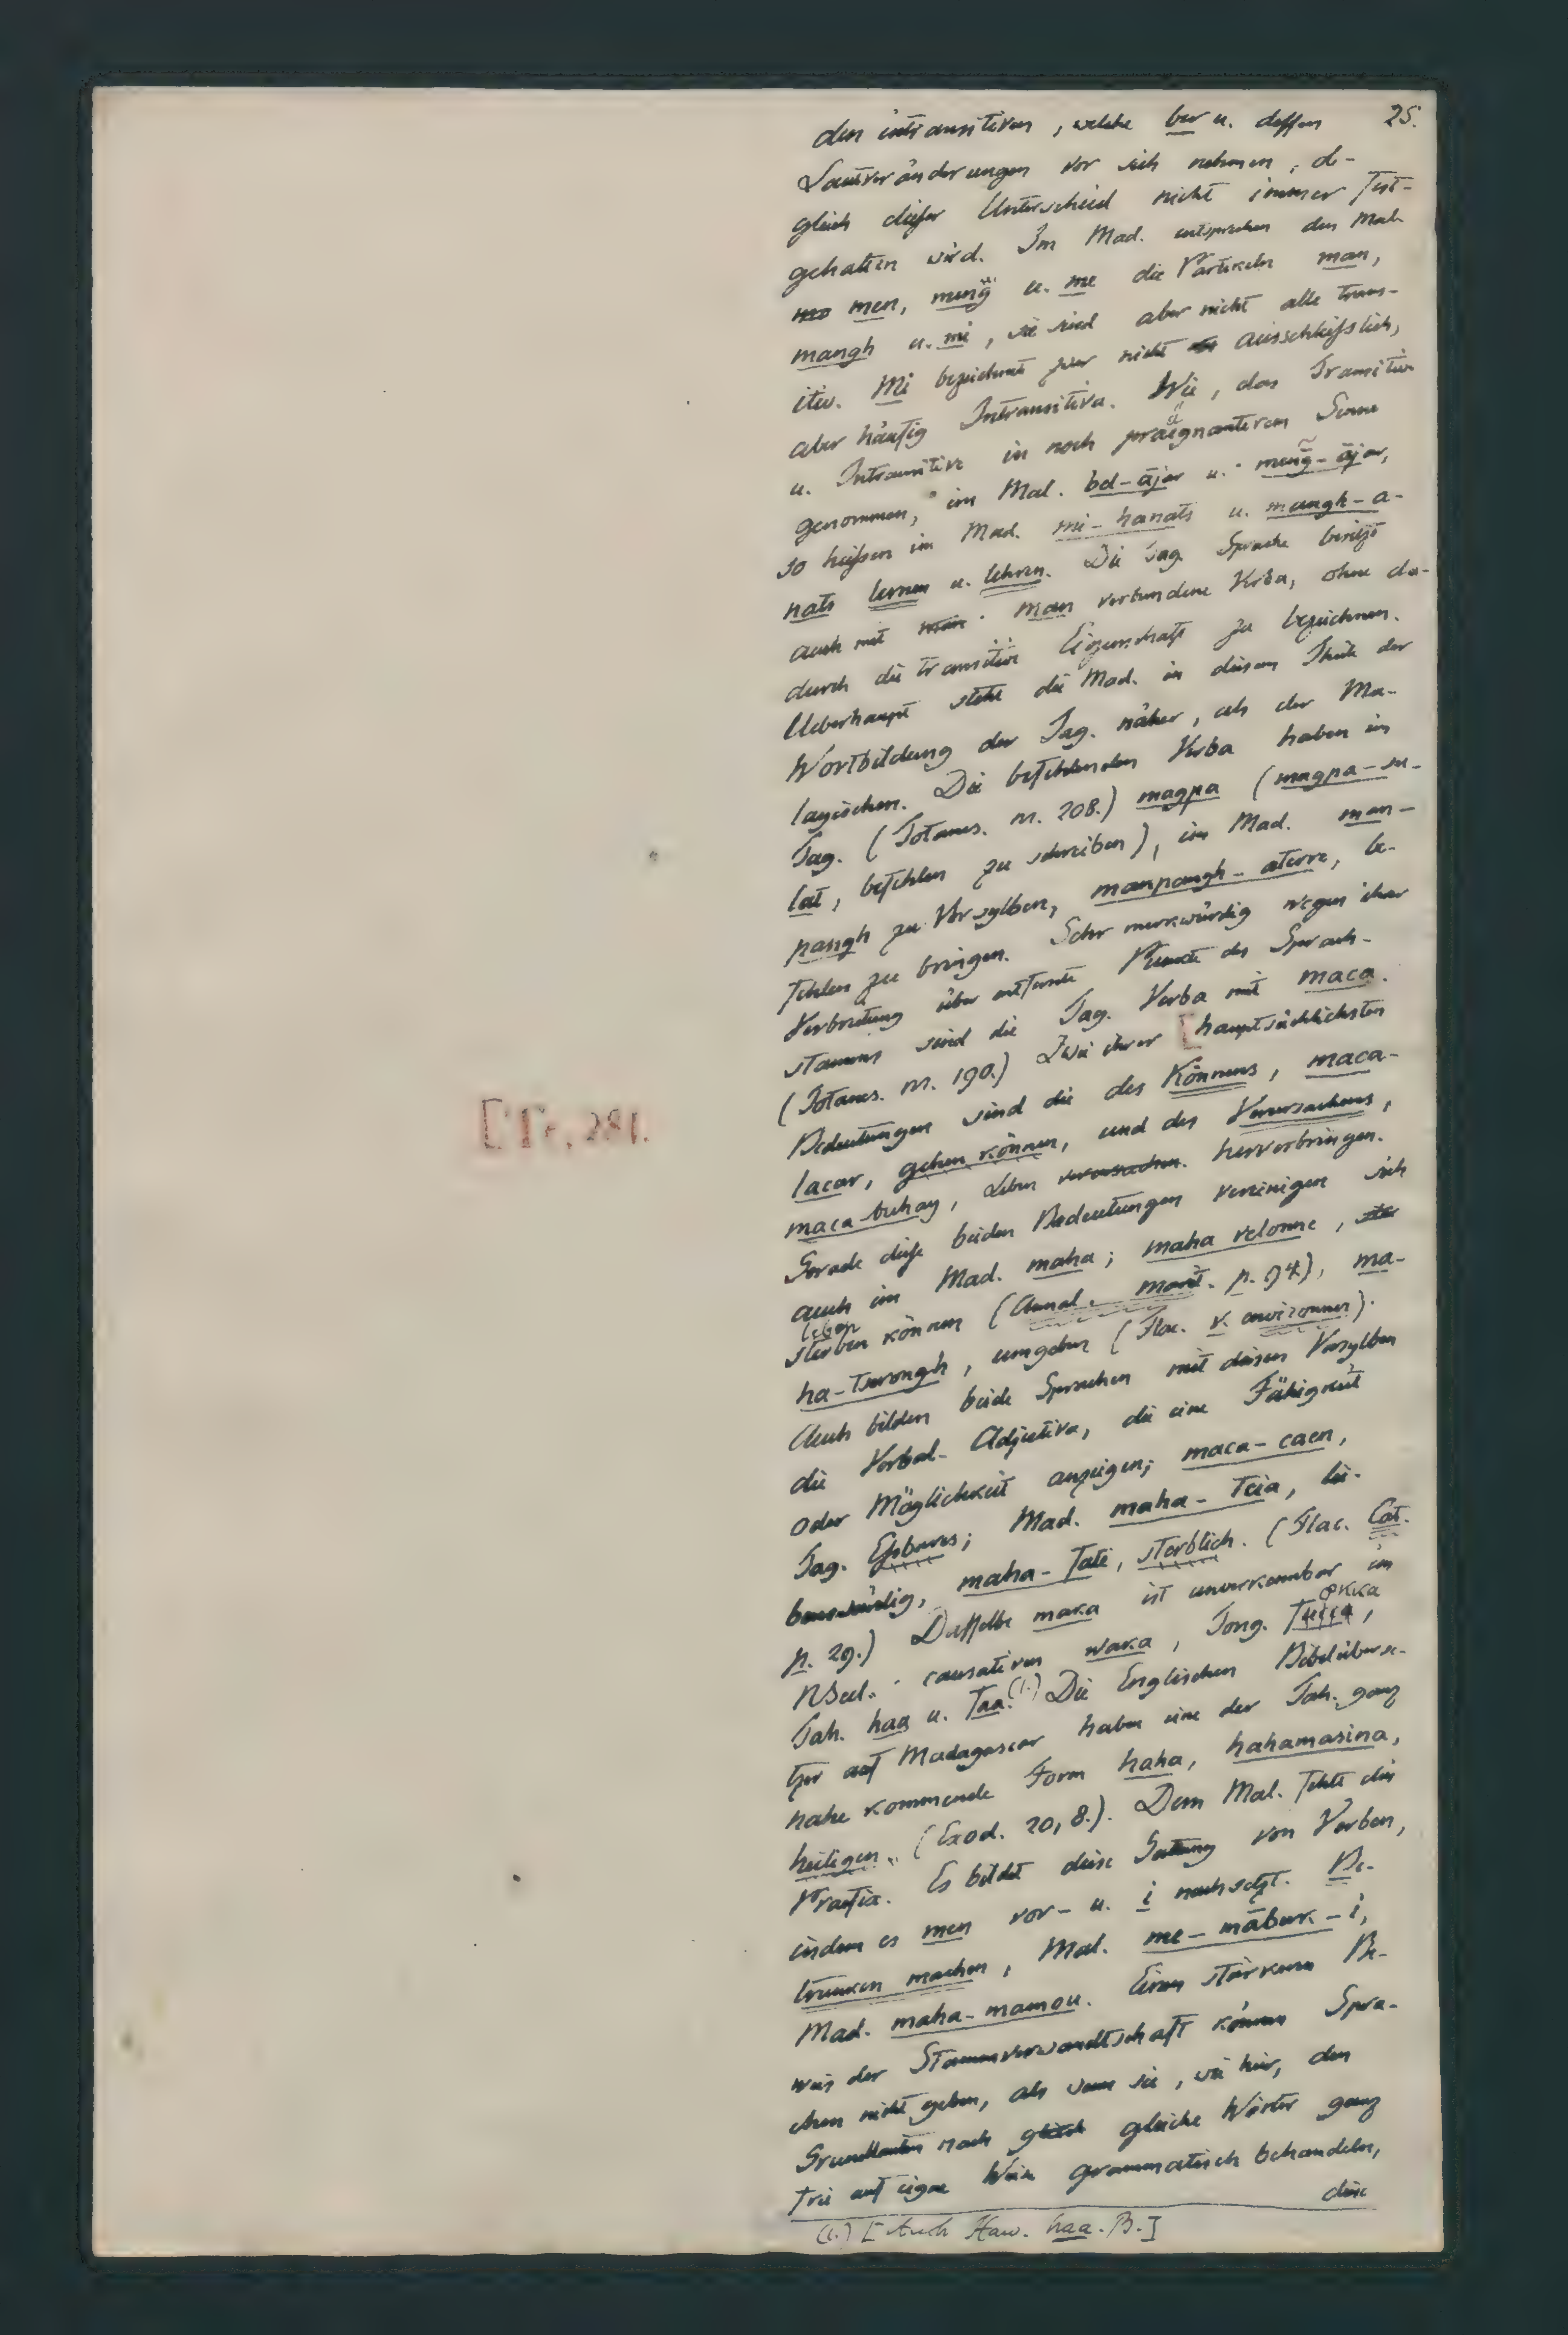 25.
den intransitiven, welche ber u. dessen
Lautveränderungen vor sich nehmen, ob-
gleich dieser Unterschied nicht immer fest-
gehalten wird. Im Mad. entsprechen den Mal.
men, meng̈ u. me die Partikeln man,
mangh u. mi, sie sind aber nicht alle trans-
itiv. Mi bezeichnet zwar nicht ausschliesslich,
aber häufig Intransitiva. Wie, das Transitive
u. Intransitive in noch praegnanterem Sinne
genommen, im Mal. bel-ājar u. meng̃-ājar,
so heissen im Mad. mi-hanats u. mangh-a-
nats lernen u. lehren. Die Tag. Sprache besitzt
auch mit man verbundene Verba, ohne da-
durch die transitive Eigenschaft zu bezeichnen.
Ueberhaupt steht die Mad. in diesem Theile der
Wortbildung der Tag. näher, als der Ma-
layischen. Die befehlenden Verba haben im
Tag. (Totanes. nr. 208.) magpa (magpa-su-
lat, befehlen zu schreiben), im Mad. man-
pangh zu Vorsylben, manpangh-aterre, be-
fehlen zu bringen. Sehr merkwürdig wegen ihrer
Verbreitung über entfernte Punkte des Sprach-
stamms sind die Tag. Verba mit maca.
(Totanes. nr. 190.) Zwei ihrer [hauptsächlichsten
[Tr. 281.
Bedeutungen sind die des Könnens, maca-
lacar, gehen können, und des Verursachens,
maca buhay, Leben verursachen. hervorbringen.
Gerade diese beiden Bedeutungen vereinigen sich
auch im Mad. maha; maha velonne,
leben
sterben können (Annal. marit. p. 94), ma-
ha-tserongh, umgeben (Flac. v. environner).
Auch bilden beide Sprachen mit diesen Vorsylben
die Verbal-Adjectiva, die eine Fähigkeit
oder Möglichkeit anzeigen; maca-caen,
Tag. Essbares; Mad. maha-teia, lie-
benswürdig, maha-fate, sterblich. (Flac. Cat.
p. 29.) Dasselbe maka ist unverkennbar im
NSeel. causativen waka, Tong. fucca,
okka
Tah. haa u. faa.(1.) Die Englischen Bibelüberse-
tzer auf Madagascar haben eine der Tah. ganz
nahe kommende Form haha, hahamasina,
heiligen. (Exod. 20, 8.). Dem Mal. fehlt dies
Praefix. Es bildet diese Gattung von Verben,
indem es men vor- u. i nachsetzt. Be-
trunken machen, Mal. me-mābuk-i,
Mad. maha-mamou. Einen stärkeren Be-
weis der Stammverwandtschaft können Spra-
chen nicht geben, als wenn sie, wie hier, den
Grundlauten nach gleich gleiche Wörter ganz
frei auf eigne Weise grammatisch behandeln,
diese
(1.) [Auch Haw. haa. B.]